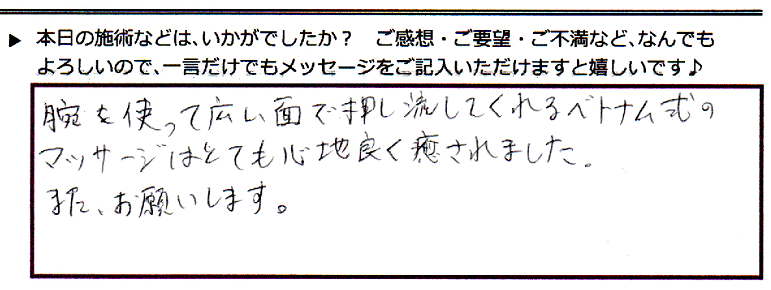 ▶ 本日の施術などは、いかがでしたか？　ご感想・ご要望・ご不満など、なんでも
よろしいので、一言だけでもメッセージをご記入いただけますと嬉しいです♪
腕を使って広い面で押し流してくれるベトナム式の
マッサージはとても心地良く癒されました。
また、お願いします。